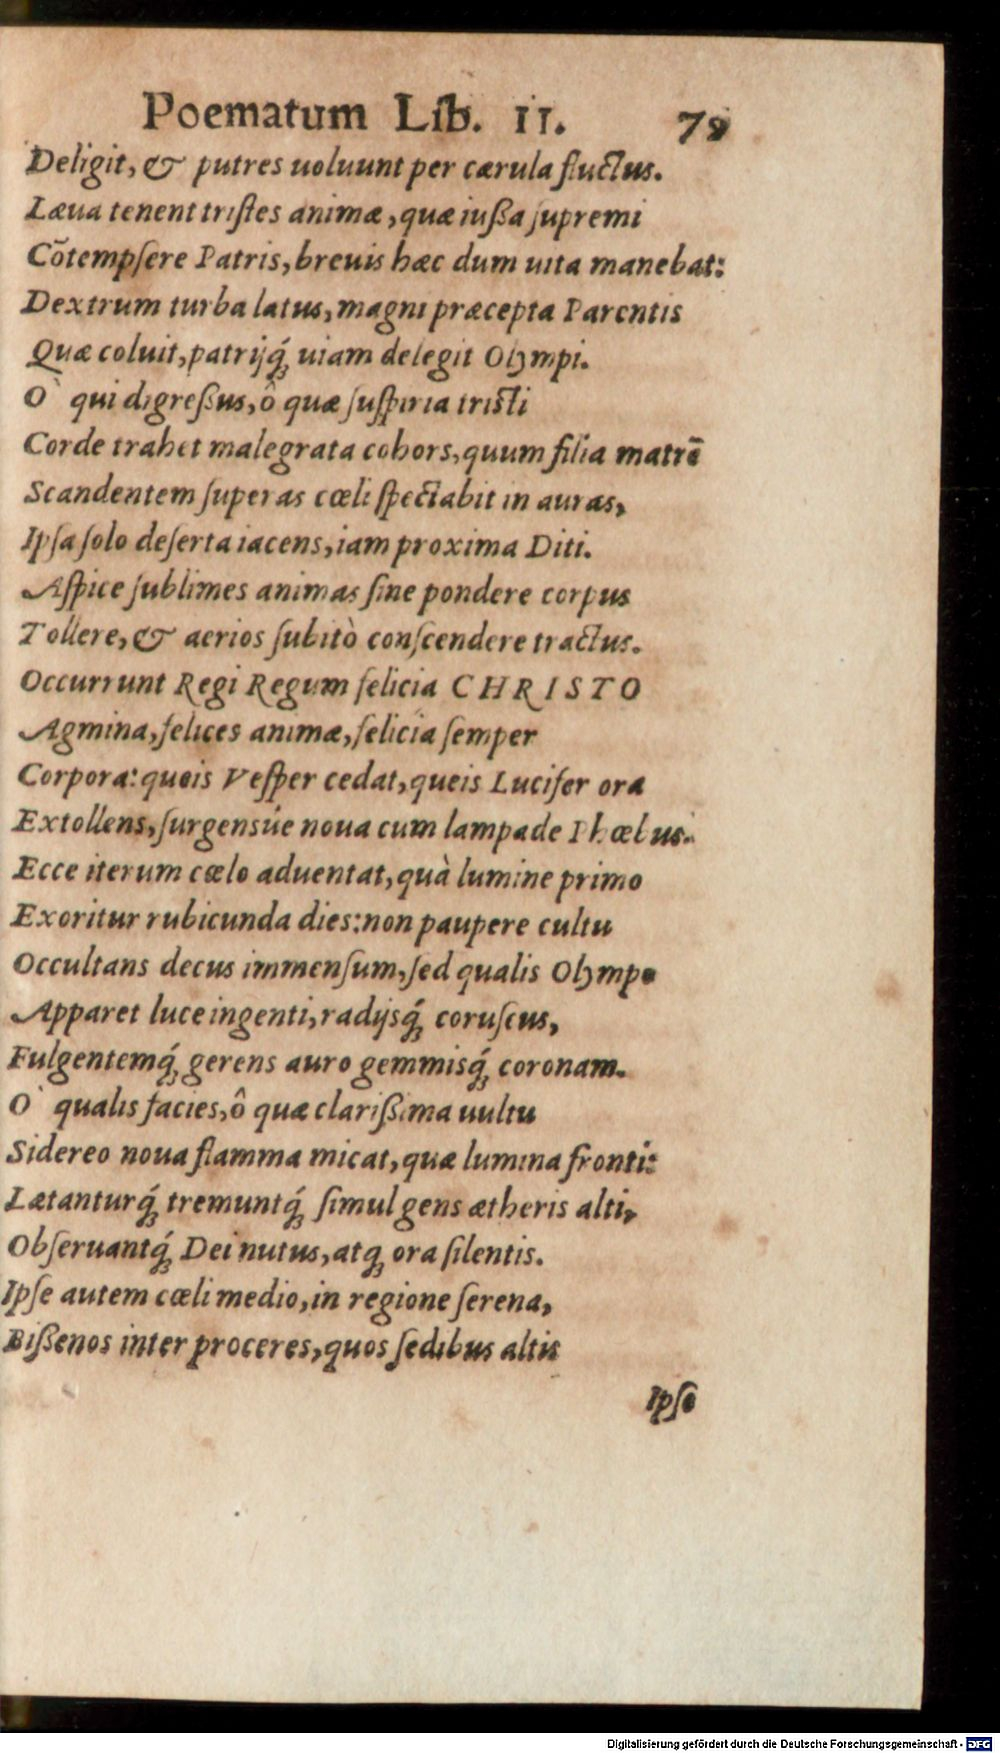 Poematum Lib. II. 79
Deligit, & putres uoluunt per cærula fluctus.
Læua tenent tristes animæ, quæ iußa supremi
Cõtempsere Patris, breuis hæc dum uita manebat:
Dextrum turba latus, magni præcepta Parentis
Quæ coluit, patrijq́ꝫ uiam delegit Olympi.
O` qui digreßus, ô quæ suspiria tristi
Corde trahet malegrata cohors, quum filia matrē
Scandentem superas cœli spectabit in auras,
Ipsa solo deserta iacens, iam proxima Diti.
Aspice sublimes animas sine pondere corpus
Tollere, & aerios subitò conscendere tractus.
Occurrunt Regi Regum felicia CHRISTO
Agmina, felices animæ, felicia semper
Corpora: queis Vesper cedat, queis Lucifer ora
Extollens, surgensúe noua cum lampade Phœbus.
Ecce iterum cœlo aduentat, quà lumine primo
Exoritur rubicunda dies: non paupere cultu
Occultans decus immensum, sed qualis Olympo
Apparet luce ingenti, radijsq́ꝫ coruscus,
Fulgentemq́ꝫ gerens auro gemmisq́ꝫ coronam.
O` qualis facies, ô quæ clarißima uultu
Sidereo noua flamma micat, quæ lumina fronti:
Lætanturq́ꝫ tremuntq́ꝫ simul gens ætheris alti,
Obseruantq́ꝫ Dei nutus, atqꝫ ora silentis.
Ipse autem cœli medio, in regione serena,
Bißenos inter proceres, quos sedibus altis
Ipse
Digitalisierung gefördert durch die Deutsche Forschungsgemeinschaft - DFG